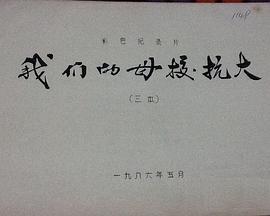 1148
彩色纪录片
我们的母校·抗大
（三本）
一九八六年五月